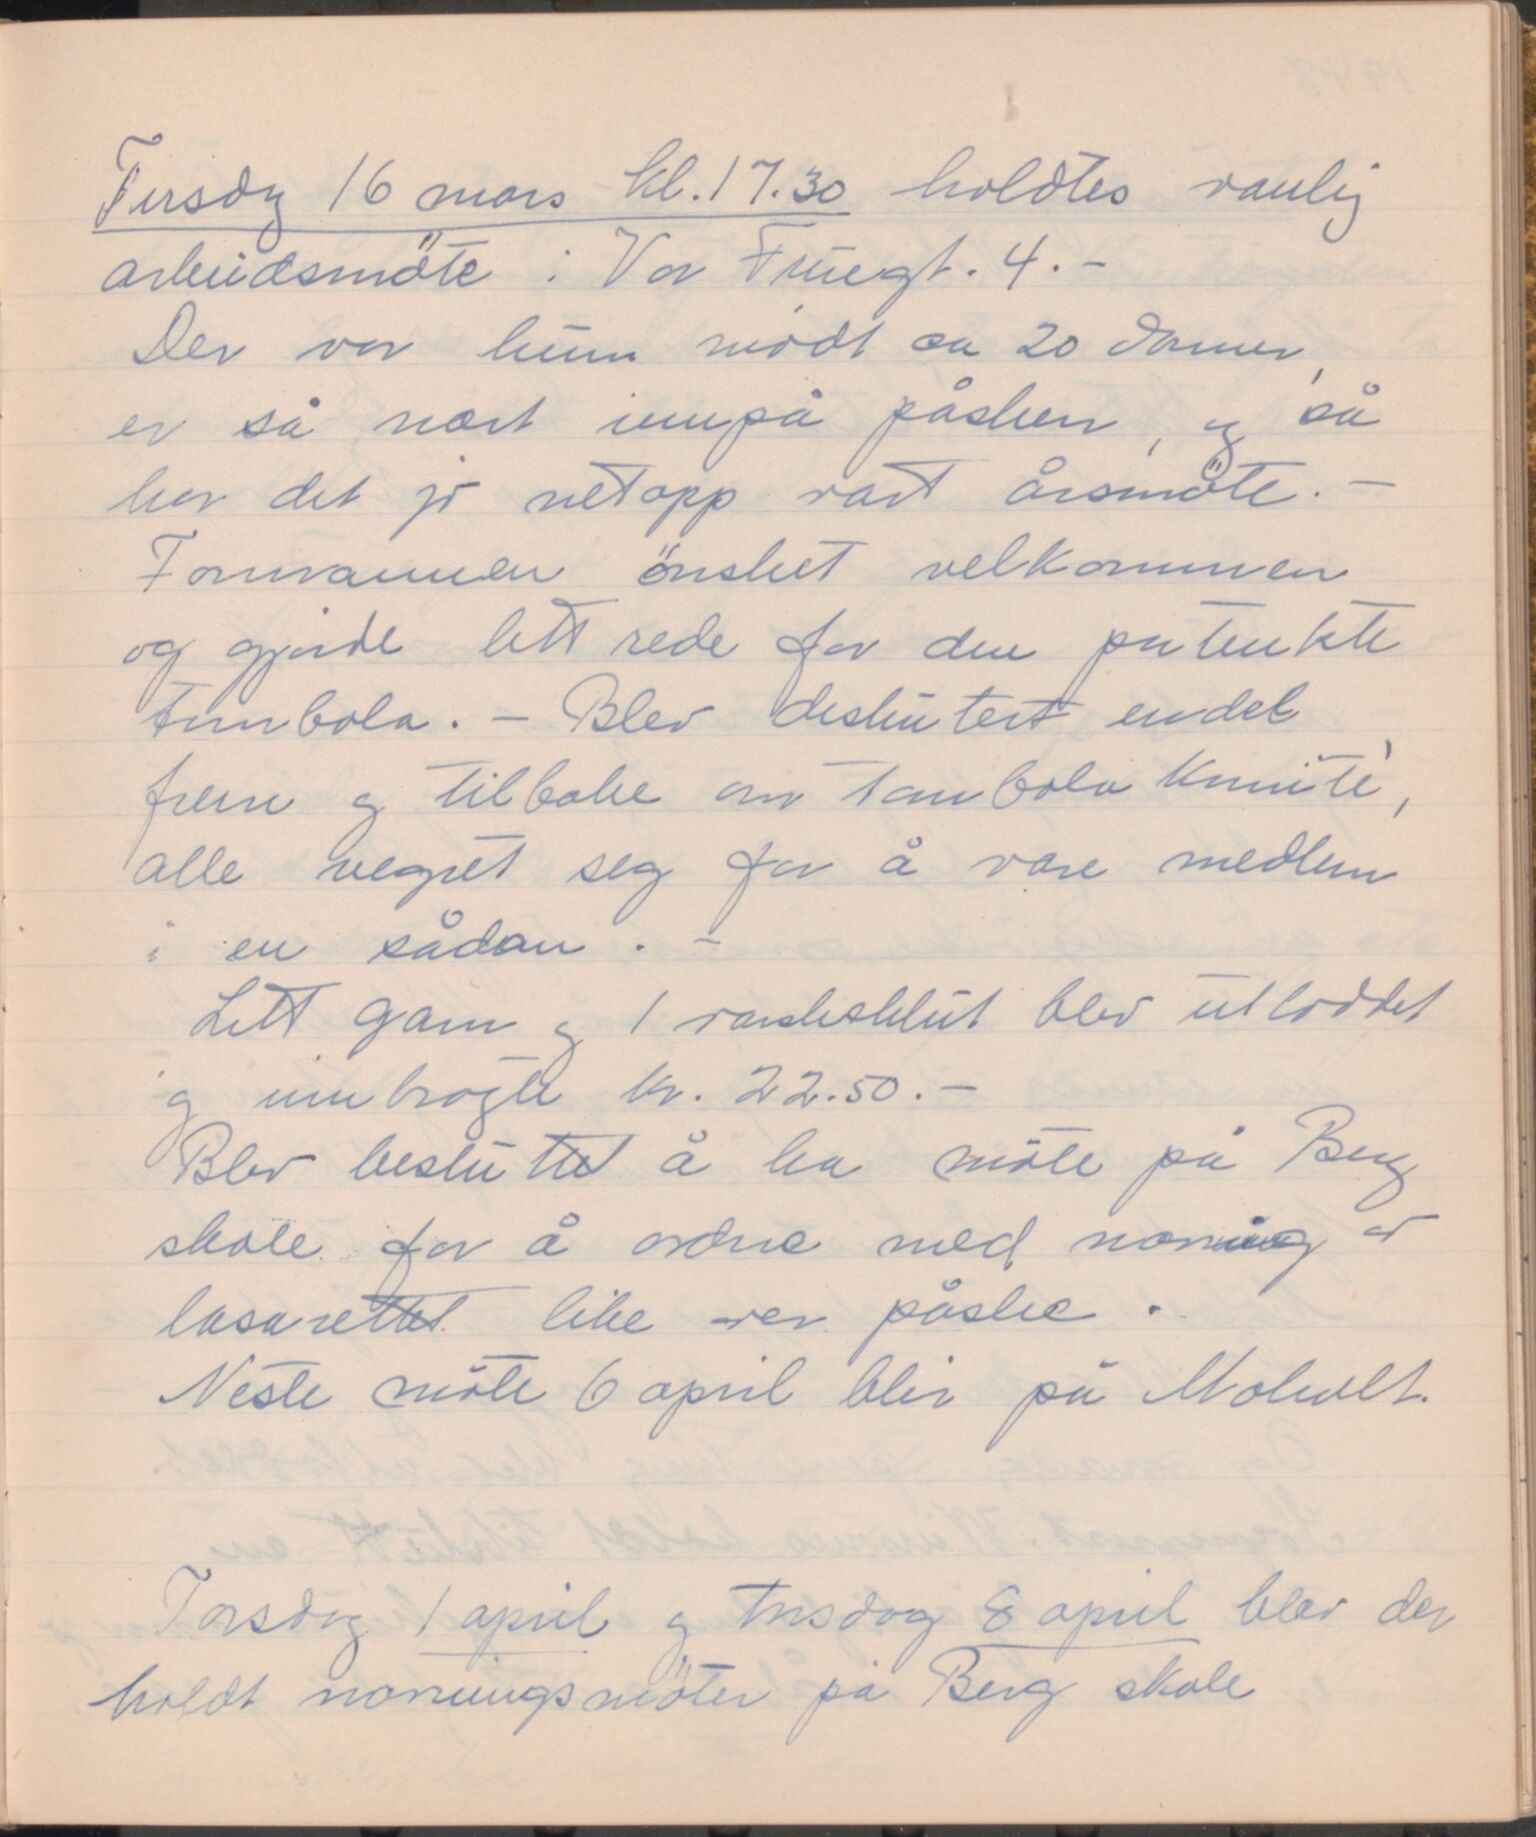 Tirsdag 16 mars kl. 17.30 holdtes vanlig
arbeidsmöte i Vor Fruegt. 4. -
Der var kun mödt ca 20 damer,
er så nært innpå påsken, og så
har det jo netopp vært årsmöte. -
Formannen önsket velkommen
og gjorde litt rede for den påtenkte
tombola. - Blev diskutert endel
frem og tilbake om tombola kmite,
alle vegret seg for å være medlem
i en sådan. -
Litt garn og 1 vaskeklut blev utloddet
og innbragte kr. 22.50. -
Blev besluttet å ha möte på Berg
skole for å ordne med norning av
lasarettet like over påske.
Neste möte 6 april blir på Moholt.
Torsdag 1 april og torsdag 8 april blev der
holdt norningsmöter på Berg skole